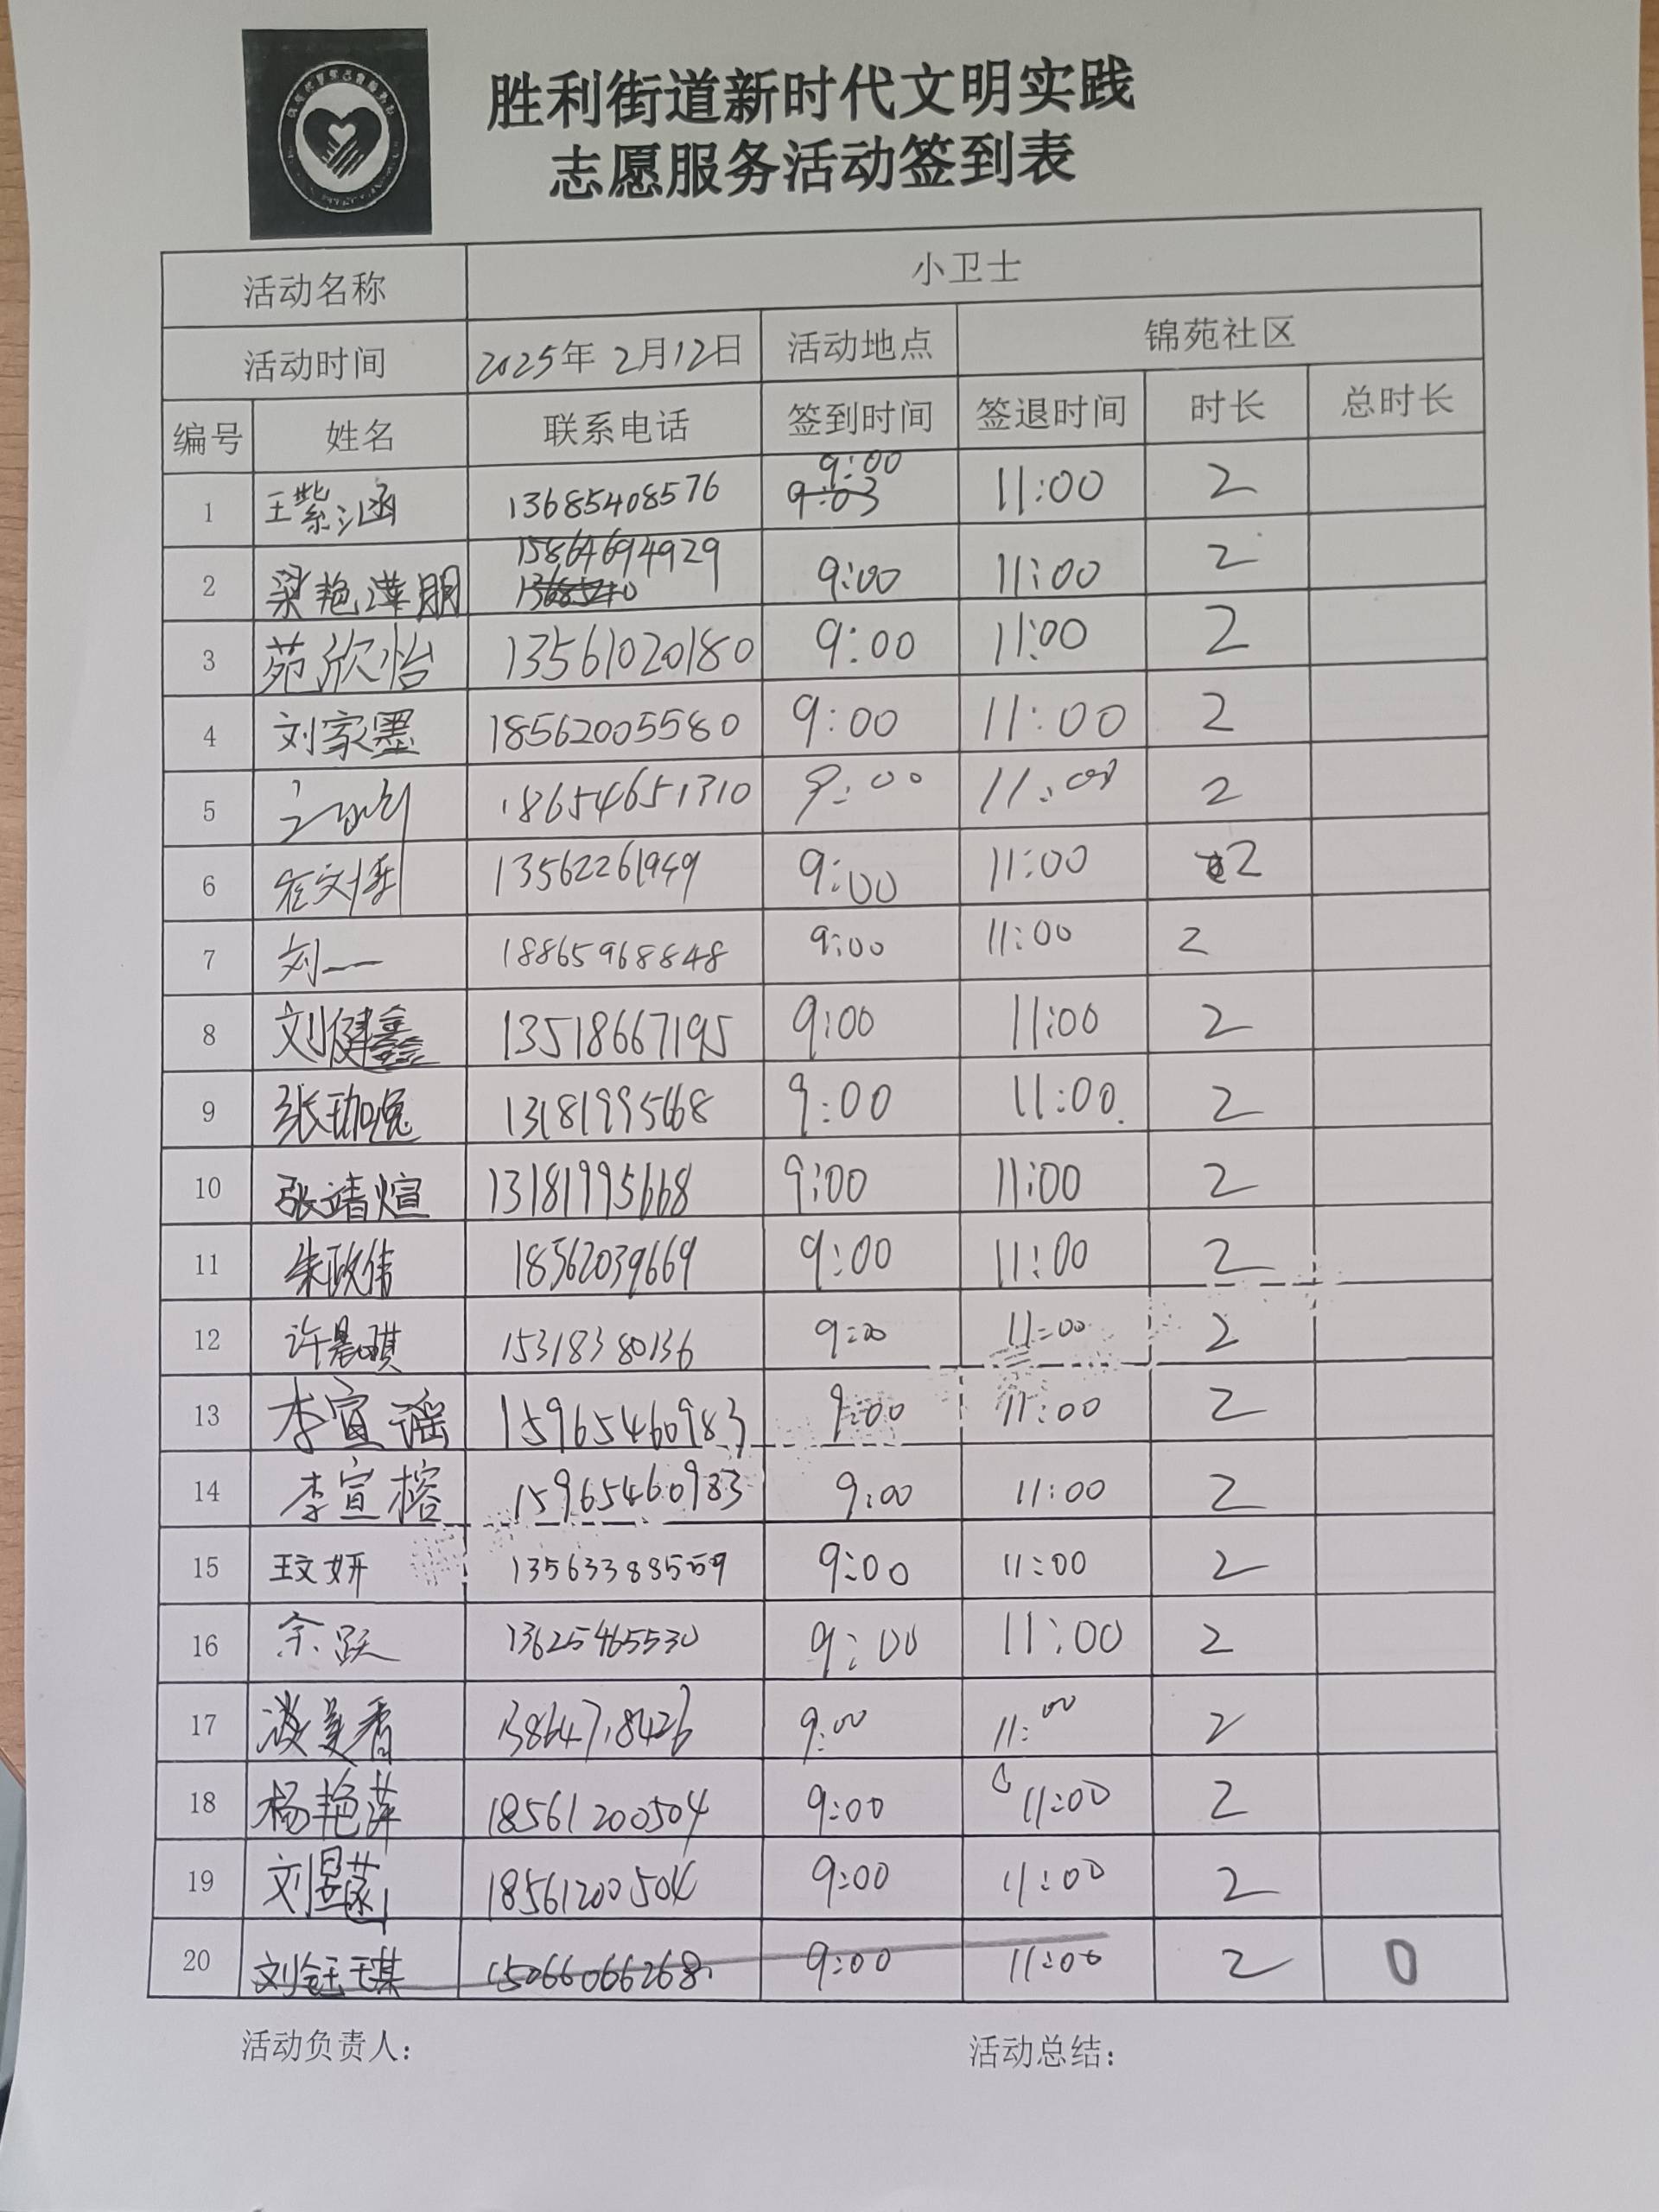 胜利街道新时代文明实践
志愿服务活动签到表
活动名称 小卫士
活动时间 2025年 2月12日 活动地点 锦苑社区
编号 姓名 联系电话 签到时间 签退时间 时长 总时长
1 王紫涵 13685408576 9:00 9:03 11:00 2
2 梁艳萍 15864694929 9:00 11:00 2
3 苑欣怡 13561020180 9:00 11:00 2
4 刘家墨 18562005580 9:00 11:00 2
5 18654651310 9:00 11:00 2
6 13562261949 9:00 11:00 2
7 刘一一 18865968848 9:00 11:00 2
8 刘健鑫 13518667195 9:00 11:00 2
9 张珈 13181995668 9:00 11:00 2
10 张靖煊 13181995668 9:00 11:00 2
11 朱政伟 18562039669 9:00 11:00 2
12 许晨琪 15318380136 9:00 11:00 2
13 李宣谣 15965460983 9:00 11:00 2
14 李宣榕 15965460983 9:00 11:00 2
15 王文妍 13563388559 9:00 11:00 2
16 余跃 13625465530 9:00 11:00 2
17 9:00 11:00 2
18 杨艳萍 18561200504 9:00 11:00 2
19 刘昱菡 18561200504 9:00 11:00 2
20 刘钰琪 15066066268 9:00 11:00 2 0
活动负责人： 活动总结：